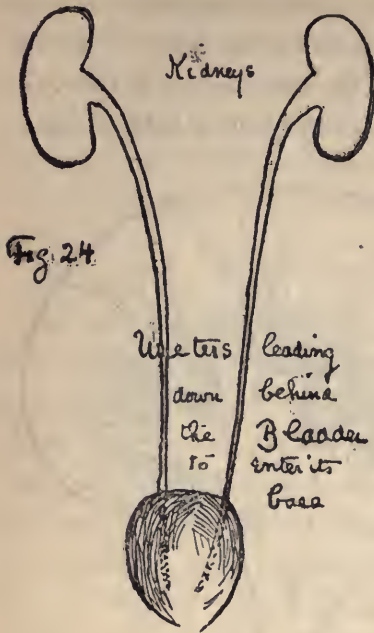 Kidneys
Fig. 24
Ureters leading
down behind
the Bladder
to enter its
base